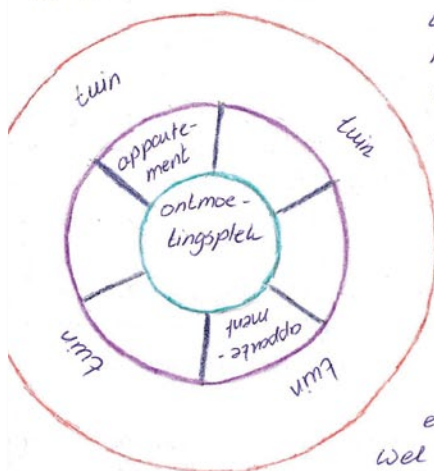 tuin
tuin
apparte-
ment
ontmoe-
tingsplek
appate-
ment
tuin
tuin
e
Wel